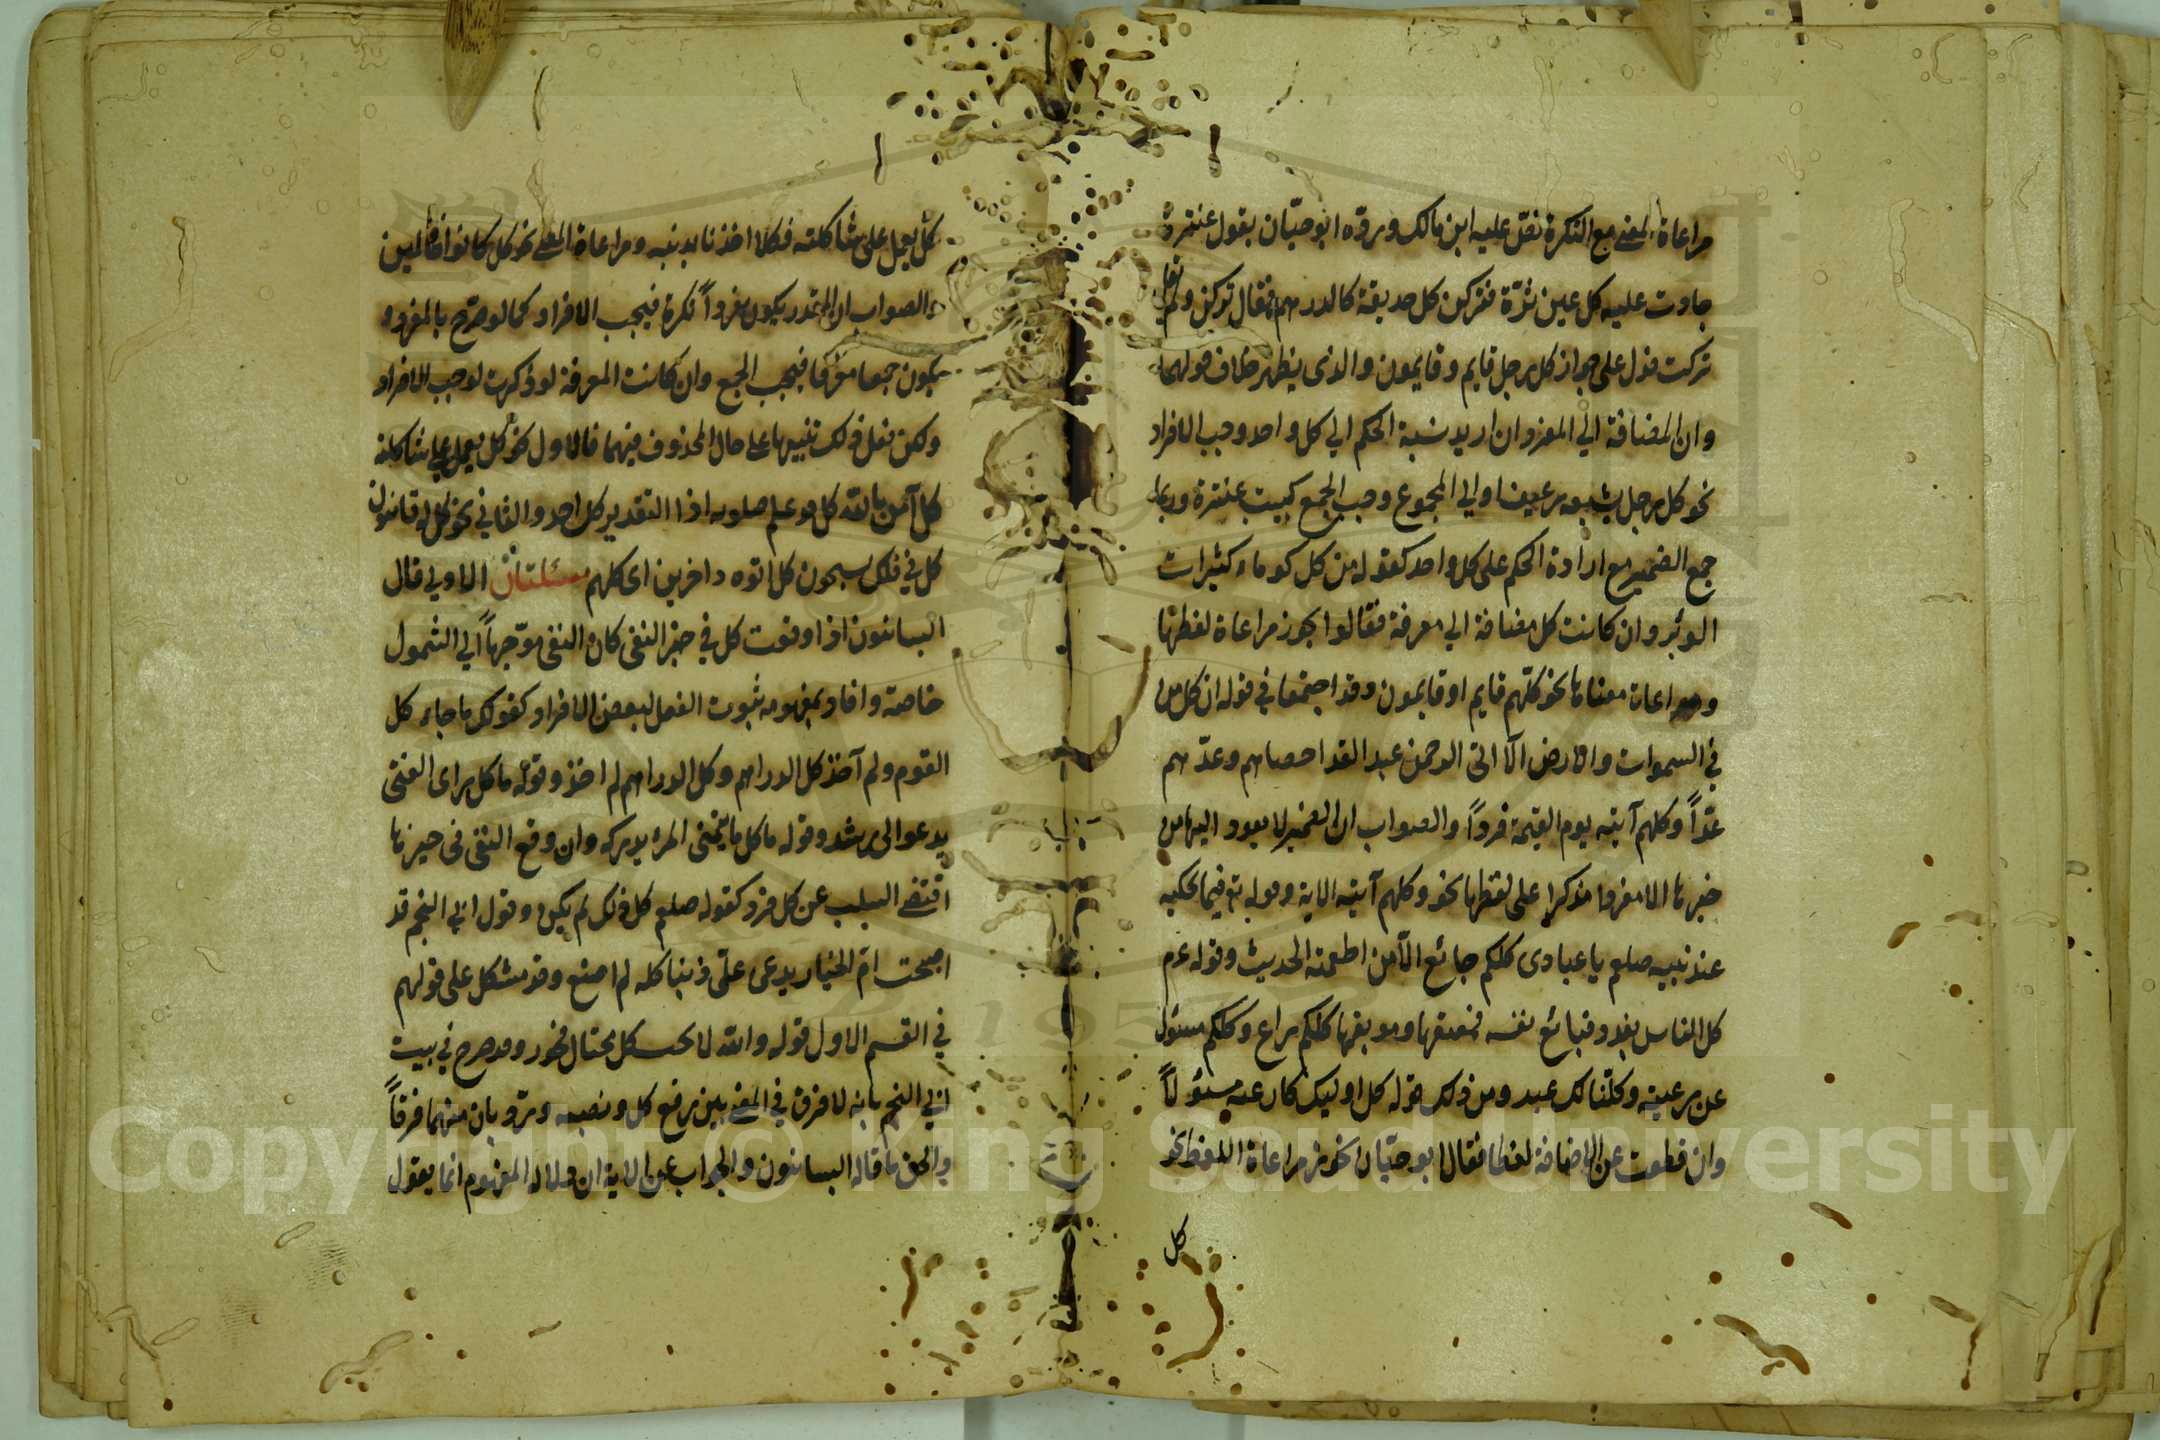 مراعاة المعنى مع النكرة نصّ عليه ابن مالك وردّه ابو حيّان بقول عنترة
جادت عليه كل عين ثرّة فتركن كل حديقة كالدرهم فقال تركن ولم يقل
تركت فدل على جواز كل رجل قايم وقايمون والذى يظهر خلاف قولهما
وان المضافة الي المفرد ان اريد نسبة الحكم الي كل واحد وجب الافراد
نحو كل رجل يشبعه رغيف او الي المجموع وجب الجمع كبيت عنترة وربما
جمع الضمير مع ارادة الحكم على كل واحد كقوله من كل كوماء كثيرات
الوبر وان كانت كل مضافة الي معرفة فقالوا يجوز مراعاة لفظها
ومراعاة معناها نحو كلّهم قايم او قايمون وقد اجتمعا في قوله ان كل من
في السموات والارض الّا اتى الرحمن عبدا لقد احصاهم وعدّهم
عدّاً وكلهم آتيه يوم القيمة فرداً والصواب ان الضمير لا يعود اليها من
خبرها الا مفردا مذكرا على لفظها نحو وكلهم آتيه الاية وقوله تع فيما يحكيه
عنه نبيه صلعم يا عبادى كلكم جائع الّا من اطعمته الحديث وقوله عم
كل الناس يغدو فبائع نفسه فمعتقها وموبقها كلكم راع وكلكم مسئول
عن رعيته وكلّنا لك عبد ومن ذلك قوله كل اوليك كان عنه مسئولاً
وان قطعت عن الاضافة لفظا فقال ابو حيّان يجوز مراعاة اللفظ نحو
كل
كل يعمل على شاكلته فكلا اخذنا بذنبه ومراعاة المعنى نحو كل كانوا ظالمين
والصواب ان المقدر يكون مفرداً نكرة فيجب الافراد كما لو صرّح بالمفرد و
يكون جمعا معرّفا فيجب الجمع وان كانت المعرفة لو ذكرت لوجب الافراد
ولكن فعل ذلك تنبيها على حال المحذوف فيهما فالاول نحو كل يعمل على شاكلته
كل آمن بالله كل قد علم صلوته اذا التقدير كل احد والثاني نحو كل له قانتون
كل في فلك يسبحون كل اتوه داخرين اى كلهم مسئلتان الاولي قال
البيانيون اذا وقعت كل في حيز النفى كان النفى موجّهاً الي الشمول
خاصة وافاد بمفهومه ثبوت الفعل لبعض الافراد كقولك ما جاء كل
القوم ولم آخذ كل الدراهم وكل الدراهم لم اخذ وقوله ما كل راى الفتى
يدعو الى رشد وقوله ما كل ما يتمنى المرء يدركه وان وقع النفى فى حيزها
اقتضى السلب عن كل فرد كقوله صلعم كل ذلك لم يكن وقول ابي النجم قد
اصبحت امّ الخيار يدعى علىّ ذنبا كله لم اصنع وقد مشكل على قولهم
في القسم الاول قوله والله لا يحب كل مختال فخور وقد صرح في بيت
ابي النجم بانه لا فرق في المعنى بين رفع كل ونصبه وردّ بان منهما فرقاً
والحق ما قاله البيانيون والجواب عن الاية ان دلالة المفهوم انما يعول
Copyright © King Saud University
1957